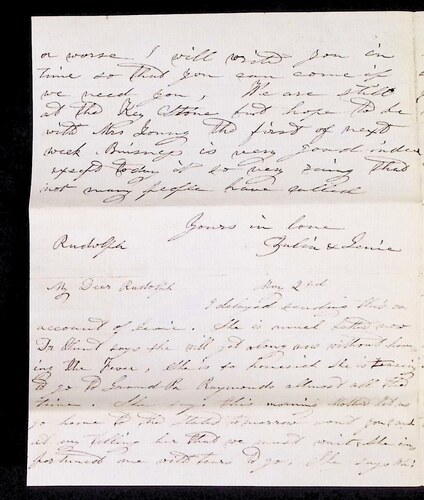 or worse I will write you in
time so that you can come if
we need you, We are still
at the Key Stone but hope to be
with Mrs Young the first of next
week. Buisness is very good indeed
except today it so very that
not many people have
Yours in love
Rudolph Julia & Genie
My Dear Rudolph Nov 2nd
I delayed sending this on
account of Genie. She is much better now
Dr Hunt says she will get along now without hav
ing the Fever, She is so homesick she is
to go to the Raymonds allmost all the
time. She says this morning Mother let us
go home to the tomorrow wont you and
at my telling her that we must wait she im
portuned me with tears to go. She says